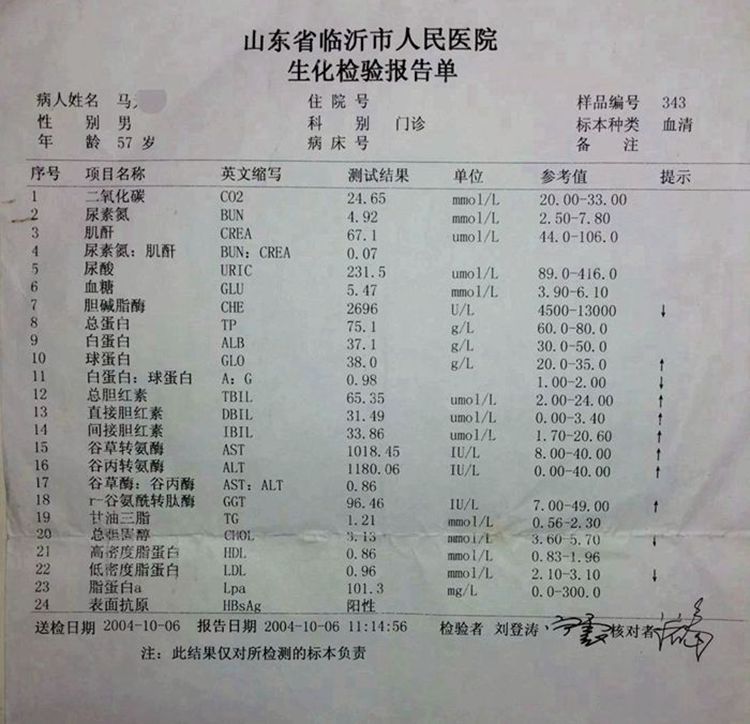 山东省临沂市人民医院
生化检验报告单
病人姓名 马 住院号 样品编号 343
性别 男 科别 门诊 标本种类 血清
年龄 57 岁 病床号 备注
序号 项目名称 英文缩写 测试结果 单位 参考值 提示
1 二氧化碳 CO2 24.65 mmol/L 20.00-33.00
2 尿素氮 BUN 4.92 mmol/L 2.50-7.80
3 肌酐 CREA 67.1 umol/L 44.0-106.0
4 尿素氮：肌酐 BUN：CREA 0.07
5 尿酸 URIC 231.5 umol/L 89.0-416.0
6 血糖 GLU 5.47 mmol/L 3.90-6.10
7 胆碱脂酶 CHE 2696 U/L 4500-13000 ↓
8 总蛋白 TP 75.1 g/L 60.0-80.0
9 白蛋白 ALB 37.1 g/L 30.0-50.0
10 球蛋白 GLO 38.0 g/L 20.0-35.0 ↑
11 白蛋白：球蛋白 A：G 0.98 1.00-2.00 ↓
12 总胆红素 TBIL 65.35 umol/L 2.00-24.00 ↑
13 直接胆红素 DBIL 31.49 umol/L 0.00-3.40 ↑
14 间接胆红素 IBIL 33.86 umol/L 1.70-20.60 ↑
15 谷草转氨酶 AST 1018.45 IU/L 8.00-40.00 ↑
16 谷丙转氨酶 ALT 1180.06 IU/L 0.00-40.00 ↑
17 谷草酶：谷丙酶 AST：ALT 0.86
18 r-谷氨酰转肽酶 GGT 96.46 IU/L 7.00-49.00 ↑
19 甘油三脂 TG 1.21 mmol/L 0.56-2.30
20 总胆固醇 CHOL 3.13 mmol/L 3.60-5.70 ↓
21 高密度脂蛋白 HDL 0.86 mmol/L 0.83-1.96
22 低密度脂蛋白 LDL 0.96 mmol/L 2.10-3.10 ↓
23 脂蛋白a Lpa 101.3 mg/L 0.0-300.0
24 表面抗原 HBsAg 阳性
送检日期 2004-10-06 报告日期 2004-10-06 11:14:56 检验者 刘登涛 核对者
注：此结果仅对所检测的标本负责